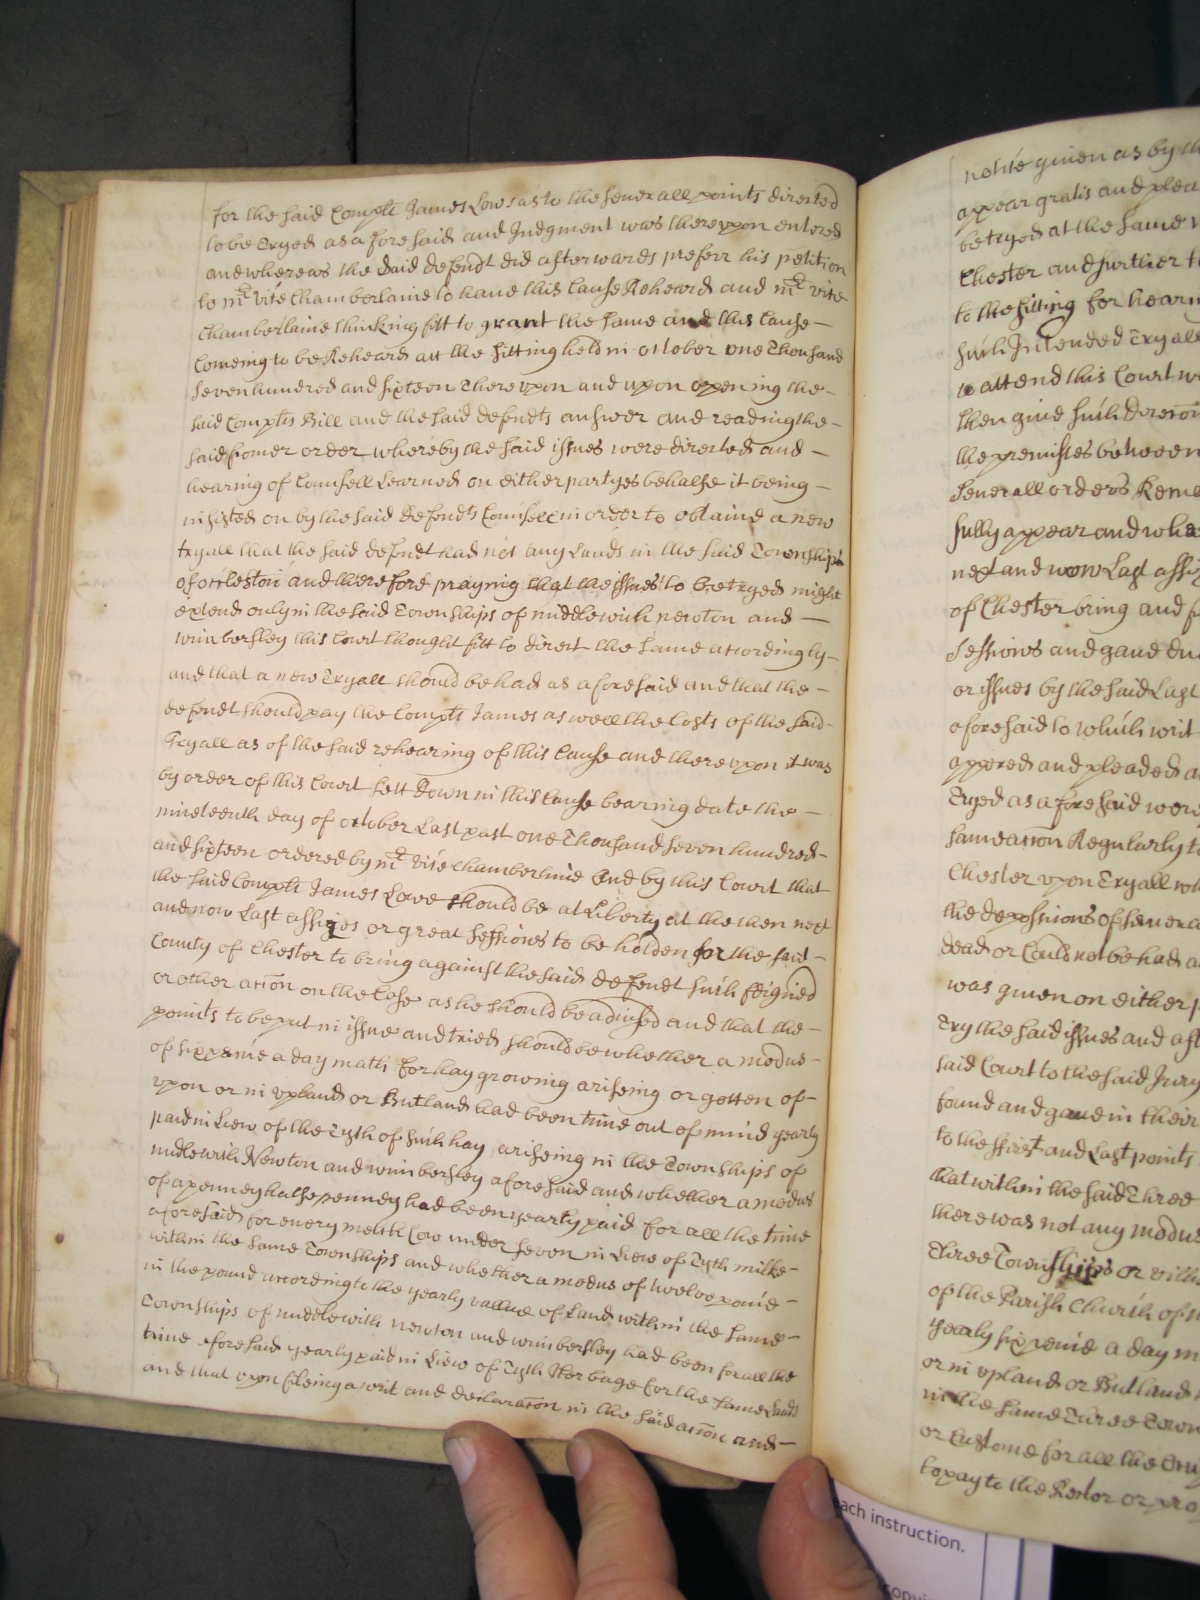 for the said Complt James Low as to the severall points directed
to be tryed as aforesaid and Judgment was thereupon entered
and whereas the said defendt did afterwards preferr his petition
to mr. vice Chamberlaine to have this Cause Reheard and mr. vice
Chamberlaine thinking fitt to grant the same and this Cause –
Comeing to be Reheard att the sitting held in october one Thousand
seven hundred and sixteen Thereupon and upon opening the –
said Complts Bill and the said defendts answer and reading the –
said fomer order whereby the said issues were directed and –
hearing of Counsell Learned on either partyes behalfe it being –
insisted on by the said defendts Counsell in order to obtaine a new
tryall that the said defendt had not any Lands in the said Townships
of and therefore praying that the issues to be tryed might
extend only in the said Townships of middlewich newton and –
winbersley this Court thought fitt to direct the same accordingly –
and that a new Tryall should be had as aforesaid and that the –
defendt should pay the Complt James as well the Costs of the said –
Tryall as of the said rehearing of this Cause and thereupon it was
by order of this Court sett down in this Cause bearing date the –
nineteenth day of october Last past one Thousand seven hundred –
and sixteen ordered by mr. vice Chamberline and by this Court that
the said Complt James Lowe should be at Liberty at the then next
and now Last assizes or great sessions to be holden for the said –
County of Chester to bring against the said defendt such feigned
or other acōn on the Case as he should be advised and that the –
points to be put in issue and tried should be whether a modus –
of sixpence a day math for hay growing ariseing or gotten of –
upon or in upland or Butland had been time out of mind yearly
paid in Liew of the Tyth of such hay ariseing in the Townships of
midlewich Newton and winbersley aforesaid and whether a modus
of a penney halfepenney had been yearly paid for all the time
aforesaid for every melch Cow under seven in Liew of Tyth milke –
within the same Townships and whether a modus of twelve pence –
in the pound according to the yearly vallue of Land within the same –
Townships of middlewich newton and winbersley had been for all the
time aforesaid yearly paid in Liew of Tyth Herbage for the same Lands
and that upon fileing a writ and declaracōn in the said acōn and –
notice given as by
appear gratis and plea
be tryed at the same
Chester and further
to the sitting for hear
such Intended Tryall
to attend this Court
then give such
the premisses between
severall orders
fully appear and
next and now Last
of Chester bring and
sessions and gave
or issues by the said Last
aforesaid to which writ
appered and pleaded
Tryed as aforesaid were
same acōn Regularly
Chester upon Tryall
the depossions of
dead or Could not be had
was given on either
Try the said issues and
said Court to the said Jury
found and gave in their
to the first and Last points
that within the said Three
there was not any modus
Three Townships or
of the Parish Church of
yearly sixpence a day
or in upland or Butland
in the same Three
or Custome for all the
to pay to the Rector or
each instruction.